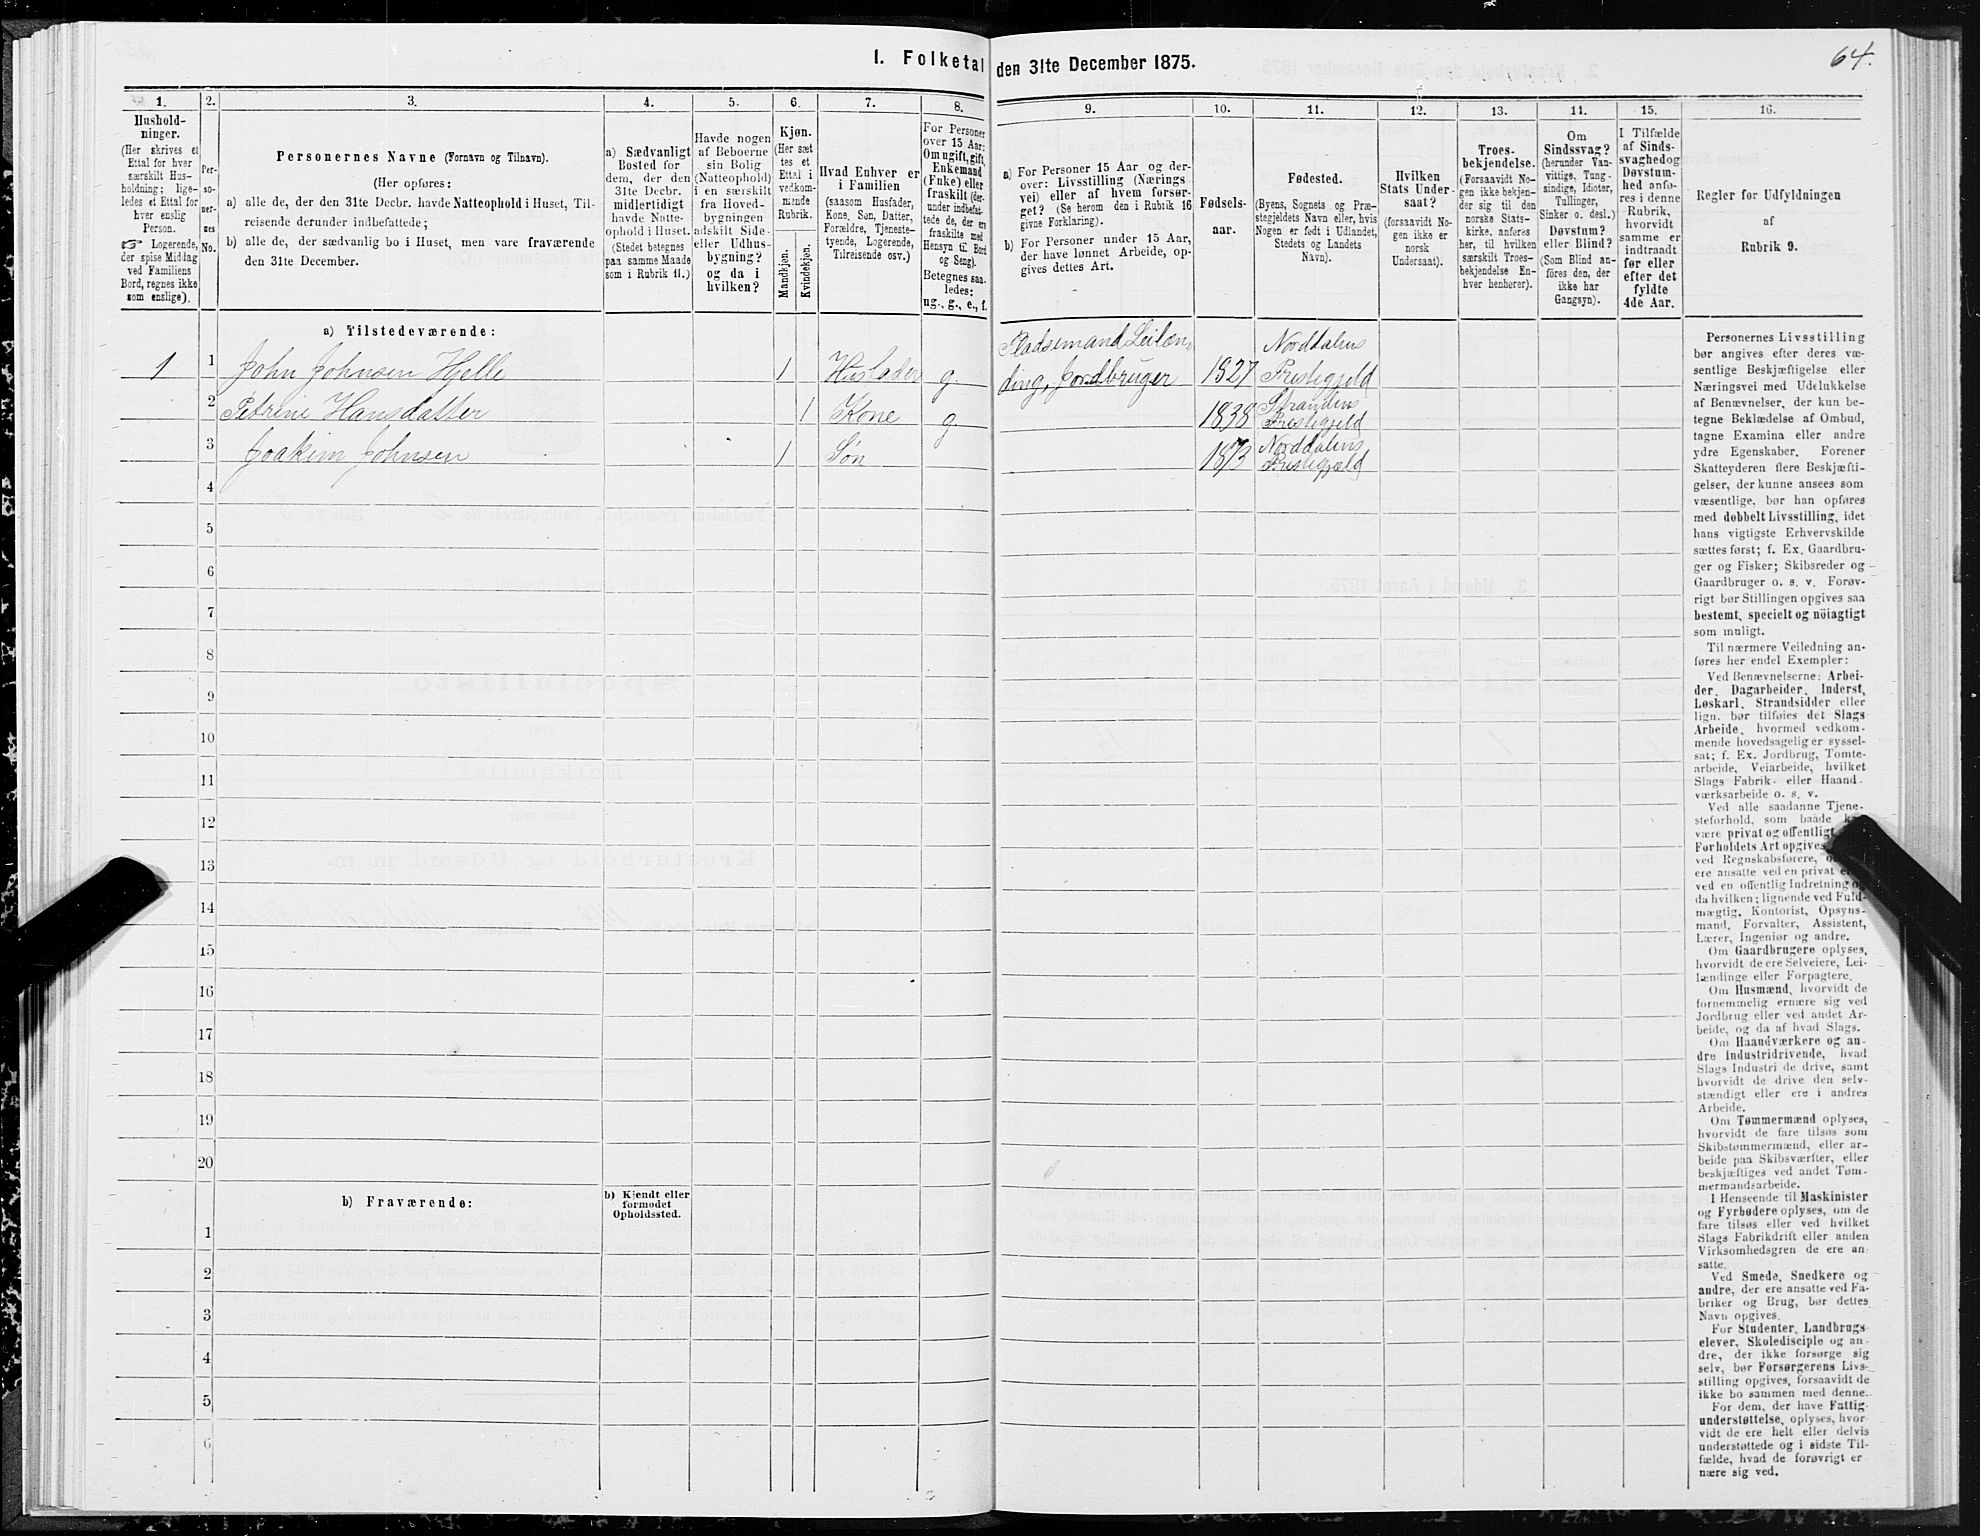 64.
1. Folketal den 31te December 1875.
1. 2. 3. 4. 5. 6. 7. 8. 9. 10. 11. 12. 13. 14. 15. 16.
Hushold-
ninger.
(Her skrives et
Ettal for hver
særskilt Hus-
holdning; lige-
ledes et Ettal for
hver enslig
Person.
☞ Logerende,
der spise Middag
ved Familiens
Bord, regnes ikke
som enslige).
Per-
so-
ner-
nes
No.
Personernes Navne (Fornavn og Tilnavn).
(Her opføres:
a) alle de, der den 31te Decbr. havde Natteophold i Huset, Til-
reisende derunder indbefattede;
b) alle de, der sædvanlig bo i Huset, men vare fraværende
den 31te December.
a) Sædvanligt
Bosted for
dem, der den
31te Decbr.
midlertidigt
havde Natte-
ophold i Huset.
(Stedet betegnes
paa samme Maade
som i Rubrik 11.)
Havde nogen
af Beboerne
sin Bolig
(Natteophold)
i en særskilt
fra Hoved-
bygningen
adskilt Side-
eller Udhus-
bygning?
og da i
hvilken?
Kjøn.
(Her sæt-
tes et
Ettal i
vedkom-
mende
Rubrik.
Mandkjøn.
Kvindekjøn.
Hvad Enhver er
i Familien
(saasom Husfader,
Kone, Søn, Datter,
Forældre, Tjeneste-
tyende, Logerende,
Tilreisende osv.)
For Personer
over 15 Aar:
Om ugift, gift,
Enkemand
(Fuke) eller
fraskilt (der-
under indbefat-
tede de, der ere
fraskilte med
Hensyn til Bord
og Seng).
Betegnes saa-
ledes:
ug., g., e., f.
a) For Personer 15 Aar og der-
over: Livsstilling (Nærings
vei) eller af hvem forsør-
get? (Se herom den i Rubrik 16
givne Forklaring).
b) For Personer under 15 Aar,
der have lønnet Arbeide, op-
gives dettes Art.
Fødsels-
aar.
Fødested.
(Byens, Sognets og Præ-
stegjeldets Navn eller, hvis
Nogen er født i Udlandet,
Stedets og Landets
Navn).
Hvilken
Stats Under-
saat?
(forsaavidt No-
gen ikke er
norsk
Undersaat).
Troes-
bekjendelse.
(Forsaavidt No-
gen ikke bekjen-
der sig til den
norske Stats-
kirke, anføres
her, til hvilken
særskilt Troes-
bekjendelse En-
hver henhører).
Om
Sindssvag?
(herunder Van-
vittige, Tung-
sindige, Idioter,
Tullinger,
Sinker o. desl.)
Døvstum?
eller Blind?
(Som Blind an-
føres den, der
ikke har
Gangsyn).
I Tilfælde
af Sinds-
svaghed og
Døvstum-
hed anfø-
res i denne
Rubrik,
hvorvidt
samme er
indtraadt
før eller
efter det
fyldte
4de Aar.
Regler for Udfyldningen
af
Rubrik 9.
a) Tilstedeværende:
Pladsemand Leilæn- Norddalens
1 1 John Johnsen Hjelle 1 Husfader g. ding, Jordbruger 1827 Prestegjeld
2 Petrine Hansdatter 1 Kone g 1838 Strandens Prestegjeld
3 Joakim Johnsen 1 Søn 1873 Norddalens Prestegjeld
4
5
6
7
8
9
10
11
12
13
14
15
16
17
18
19
20
b) Fraværende:
b) Kjendt eller
formodet
Opholdssted.
1
2
3
4
5
6
Personernes Livsstilling
bør angives efter deres væ-
sentlige Beskjæftigelse eller
Næringsvei med Udelukkelse
af Benævnelser, der kun be-
tegne Beklædelse af Ombud,
tagne Examina eller andre
ydre Egenskaber. Forener
Skatteyderen flere Beskjæfti-
gelser, der kunne ansees som
væsentlige, bør han opføres
med dobbelt Livsstilling, idet
hans vigtigste Erhvervskilde
sættes først; f. Ex. Gaardbru-
ger og Fisker; Skibsreder og
Gaardbruger o. s. v. Forøv-
rigt bør Stillingen opgives saa
bestemt, specielt og nöiagtigt
som muligt.
Til nærmere Veiledning an-
føres her endel Exempler:
Ved Benævnelserne: Arbei-
der, Dagarbeider, Inderst,
Løskarl, Strandsidder eller
lign. bør tilføies det Slags
Arbeide, hvormed vedkom-
mende hovedsagelig er syssel-
sat; f. Ex. Jordbrug, Tomte-
arbeide, Veiarbeide, hvilket
Slags Fabrik- eller Haand-
værksarbeide o. s. v.
Ved alle saadanne Tjene-
steforhold, som baade
være privat og offentligt,
Forholdets Art opgives,
ved Regnskabsførere,
ere ansatte ved en privat
ved en offentlig Indretning og
da hvilken; lignende ved Fuld-
mægtig, Kontorist, Opsyns-
mand, Forvalter, Assistent,
Lærer, Ingeniør og andre.
Om Gaardbrugere oplyses,
hvorvidt de ere Selveiere, Lei-
lændinge eller Forpagtere.
Om Husmænd, hvorvidt de
fornemmelig ernære sig ved
Jordbrug eller ved andet Ar-
beide, og da af hvad Slags.
Om Haandværkere og an-
dre Industridrivende, hvad
Slags Industri de drive, samt
hvorvidt de drive den selv-
stændigt eller ere i andres
Arbeide.
Om Tømmermænd oplyses,
hvorvidt de fare tilsøs som
Skibstømmermænd, eller ar-
beide paa Skibsværfter, eller
beskjæftiges ved andet Tøm-
mermandsarbeide.
I Henseende til Maskinister
og Fyrbødere oplyses, om de
fare tilsøs eller ved hvilket
Slags Fabrikdrift eller anden
Virksomhedsgren de ere an-
satte.
Ved Smede, Snedkere og
andre, der ere ansatte ved Fa-
briker og Brug, bør dettes
Navn opgives.
For Studenter, Landbrugs-
elever, Skoledisciple og an-
dre, der ikke forsørge sig
selv, bør Forsørgerens Livs-
stilling opgives, forsaavidt de
ikke bo sammen med denne.
For dem, der have Fattig-
understøttelse, oplyses, hvor-
vidt de ere helt eller delvis
understøttede og i sidste Til-
fælde, hvad de forøvrigt er-
nære sig ved.